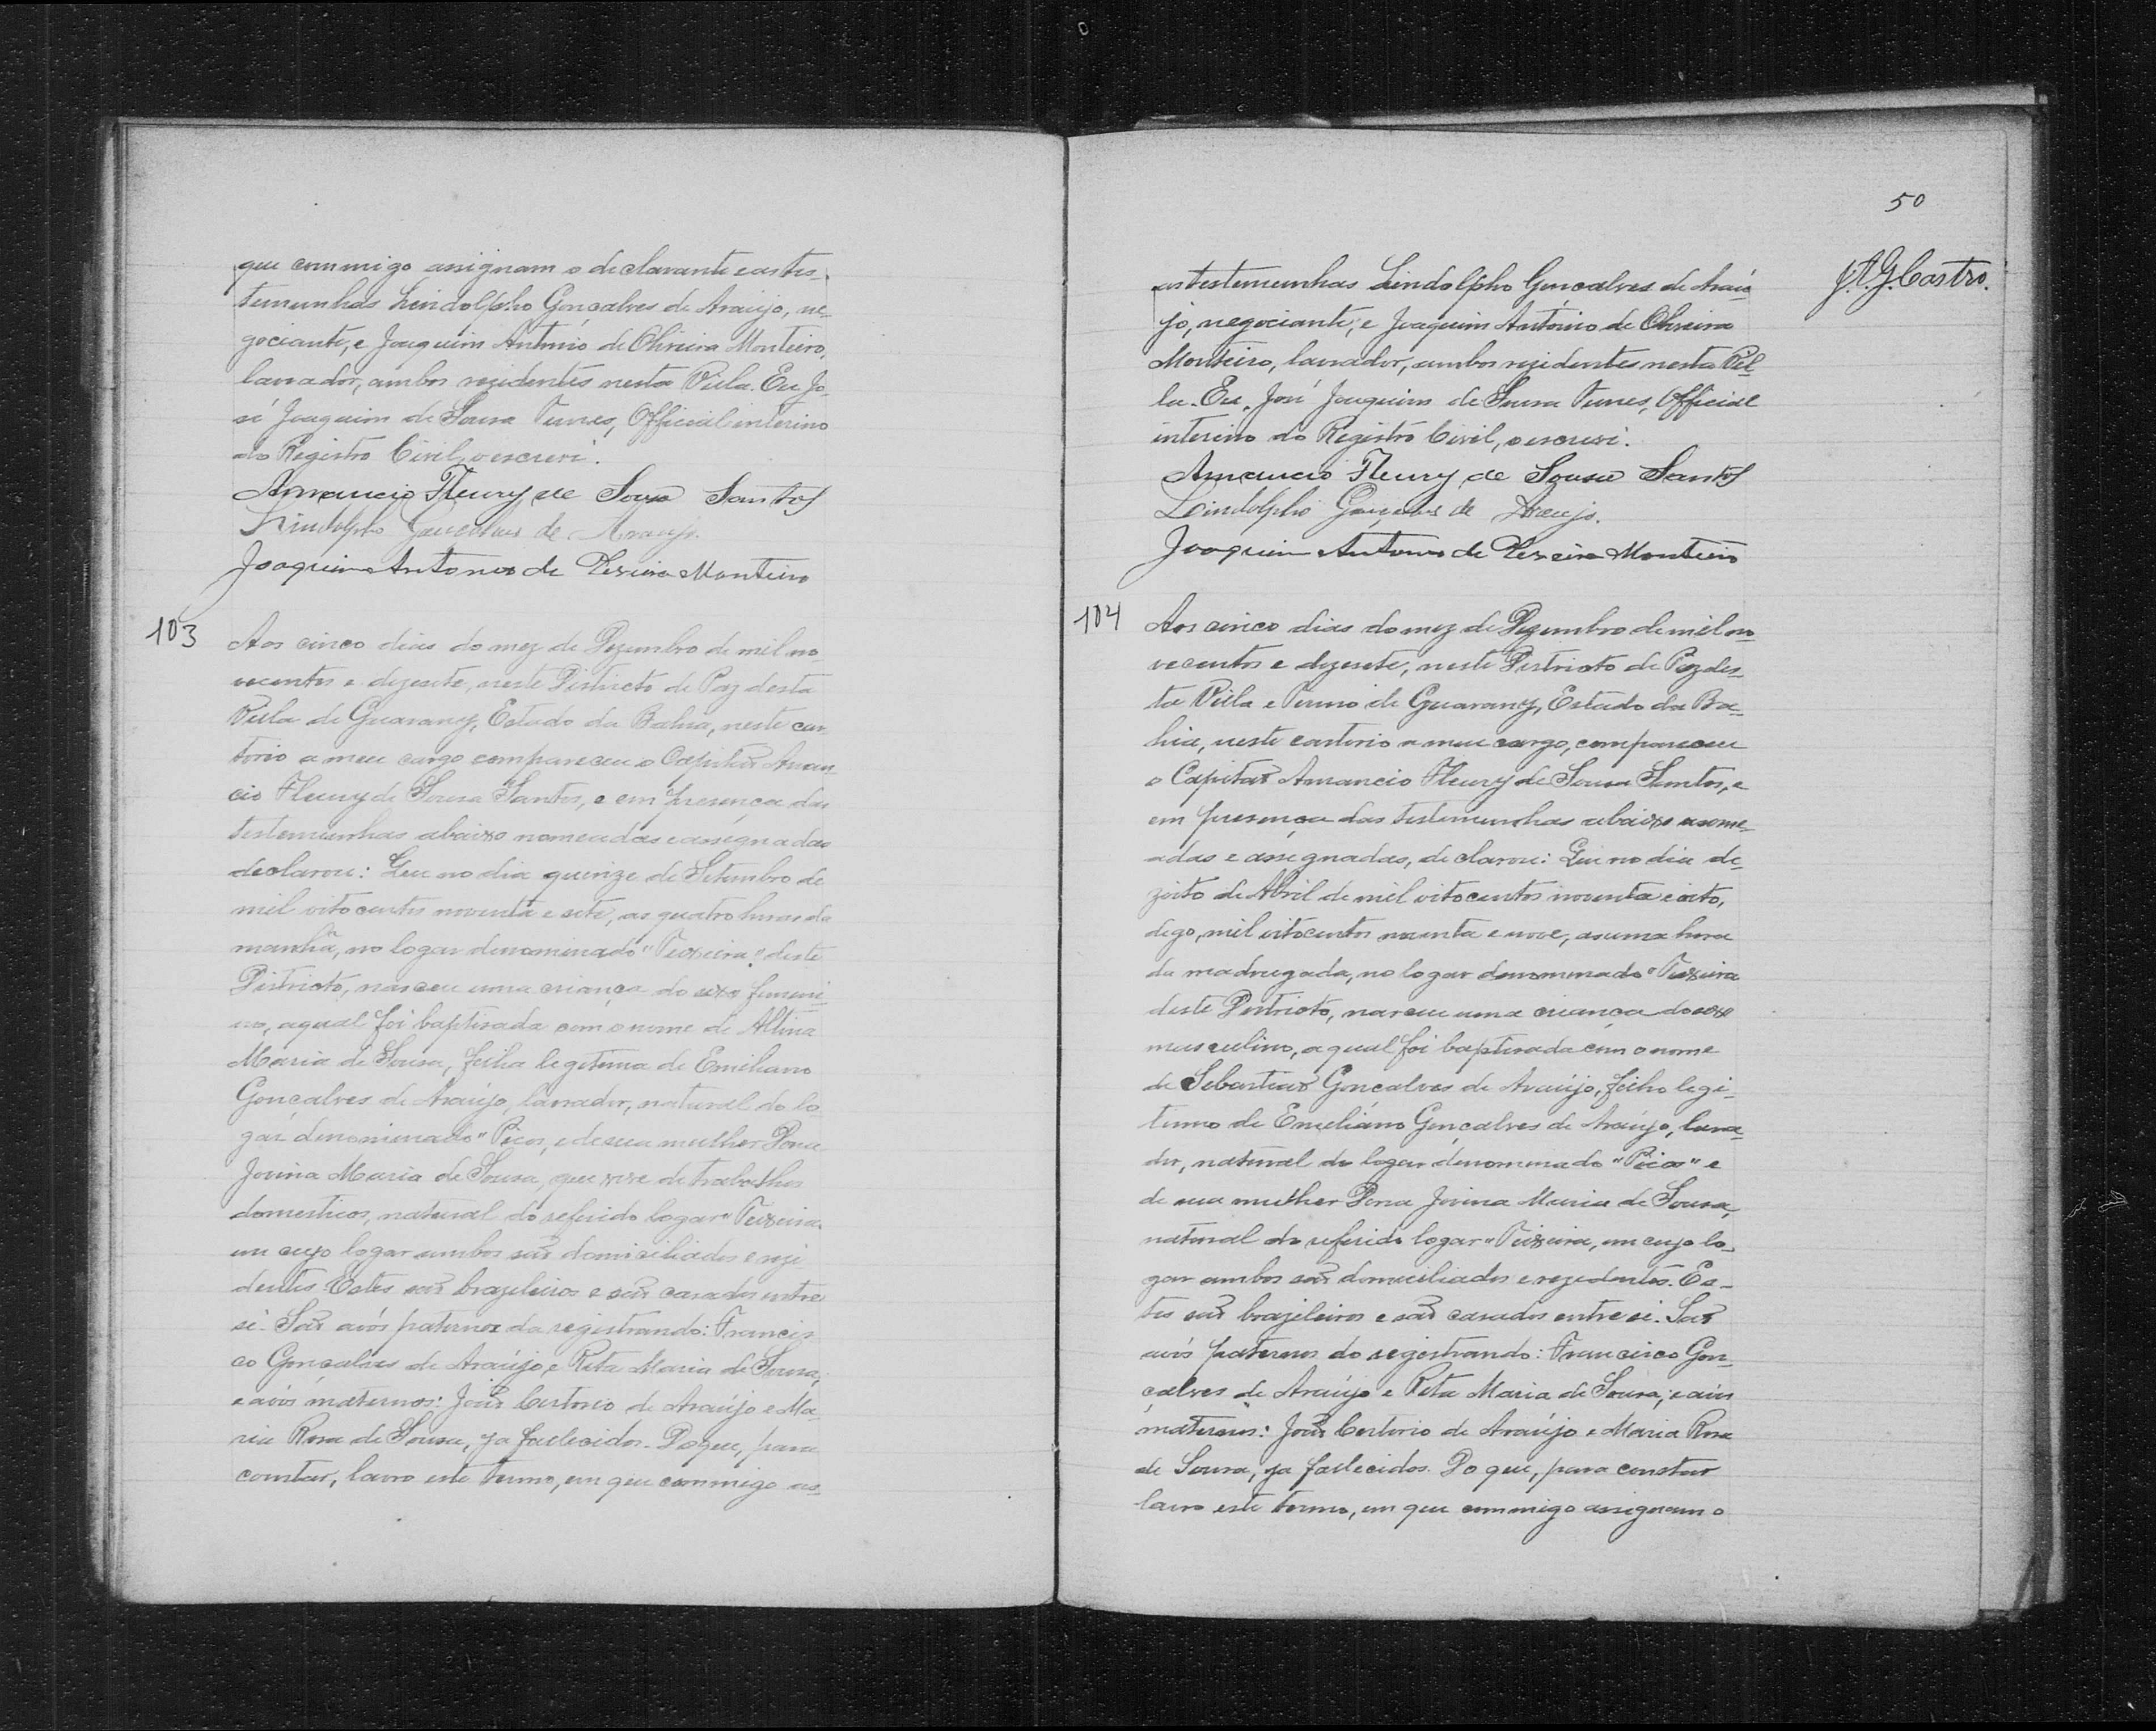 que commigo assignam o declarante e as tes-
temunhas Lindolpho Gonçalves de Araujo, ne-
gociante, e Joaquim Antonio de Oliveira Monteiro,
lavrador, ambos rezidentes nesta Villa. Eu, Jo-
sé Joaquim de Sousa Nunes, Official interino
do Registro Civil, o escrevi.
Amancio Fleury de Sousa Santos
Lindolpho Gonçalves de Araujo.
Joaquim Antonio de Oliveira Monteiro
103
Aos cinco dias do mez de Dezembro de mil no-
vecentos e dezesete, neste Districto de Paz desta
Villa de Guarany, Estado da Bahia, neste car-
torio a meu cargo compareceu o Capitão Aman-
cio Fleury de Sousa Santos, e em presença das
testemunhas abaixo nomeadas e assignadas
declarou: Que no dia quinze de Setembro de
mil oito centos noventa e sete, as quatro horas da
manhã, no logar denominado "Teixeira" deste
Districto, nasceu uma criança do sexo femini-
no, a qual foi baptisada com o nome de Altina
Maria de Sousa, filha legitima de Emiliano
Gonçalves de Araújo, lavrador, natural do lo-
gar denominado "Picos, e de sua mulher Dona
Jovina Maria de Sousa, que vive de trabalhos
domesticos, natural do referido logar "Teixeira"
em cujo logar ambos são domiciliados e rezi-
dentes. Estes são brazileiros e são casados entre
si. São avós paternos da registrando: Francis-
co Gonçalves de Araújo e Rita Maria de Sousa,
e avós maternos: João Certorio de Araújo e Ma-
ria Rosa de Sousa, ja fallecidos. Do que, para
constar, lavro este termo, em que commigo as-
50
J. A. G. Castro.
as testemunhas Lindolpho Goncalves de Araú-
jo, negociante, e Joaquim António de Oliveira
Monteiro, lavrador, ambos rezidentes nesta Vil-
la. Eu, José Joaquim de Sousa Nunes, Official
interino do Registro Civil, o escrevi.
Amancio Fleury de Sousa Santos
Lindolpho Gonçalves de Araujo.
Joaquim Antonio de Oliveira Monteiro
104
Aos cinco dias do mez de Dezembro de mil no-
vecentos e dezesete, neste Districto de Paz des-
ta Villa e Termo de Guarany, Estado da Ba-
hia, neste cartorio a meu cargo, compareceu
o Capitão Amancio Fleury de Sousa Santos, e
em presença das testemunhas abaixo nome-
adas e assignadas, declarou: Que no dia de-
zoito de Abril de mil oitocentos noventa e oito,
digo, mil oitocentos noventa e nove, as uma hora
da madrugada, no logar denominado "Teixeira
deste Districto, nasceu uma criança do sexo
masculino, a qual foi baptisada com o nome
de Sebastião Gonçalves de Araújo, filho legi-
timo de Emiliano Gonçalves de Araújo, lavra-
dor, natural do logar denominado "Picos" e
de sua mulher Dona Jovina Maria de Sousa,
natural do referido logar "Teixeira, em cujo lo-
gar ambos são domiciliados e rezidentes. Es-
tes são brazileiros e são casados entre si. São
avós paternos do registrando: Francisco Gon-
çalves de Araújo e Rita Maria de Sousa; e avós
maternos: João Certorio de Araújo e Maria Rosa
de Sousa, ja fallecidos. Do que, para constar
lavro este termo, em que commigo assignam o